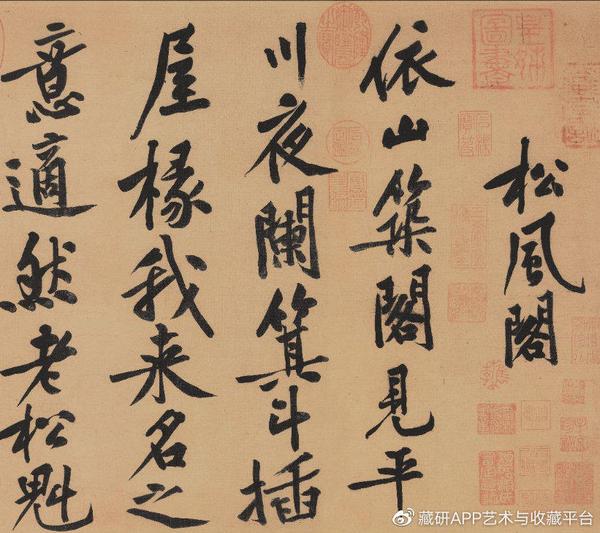 松風閣
依山築閣見平
川夜闌箕斗插
屋椽我来名之
意適然老松魁
藏研APP艺术与收藏平台